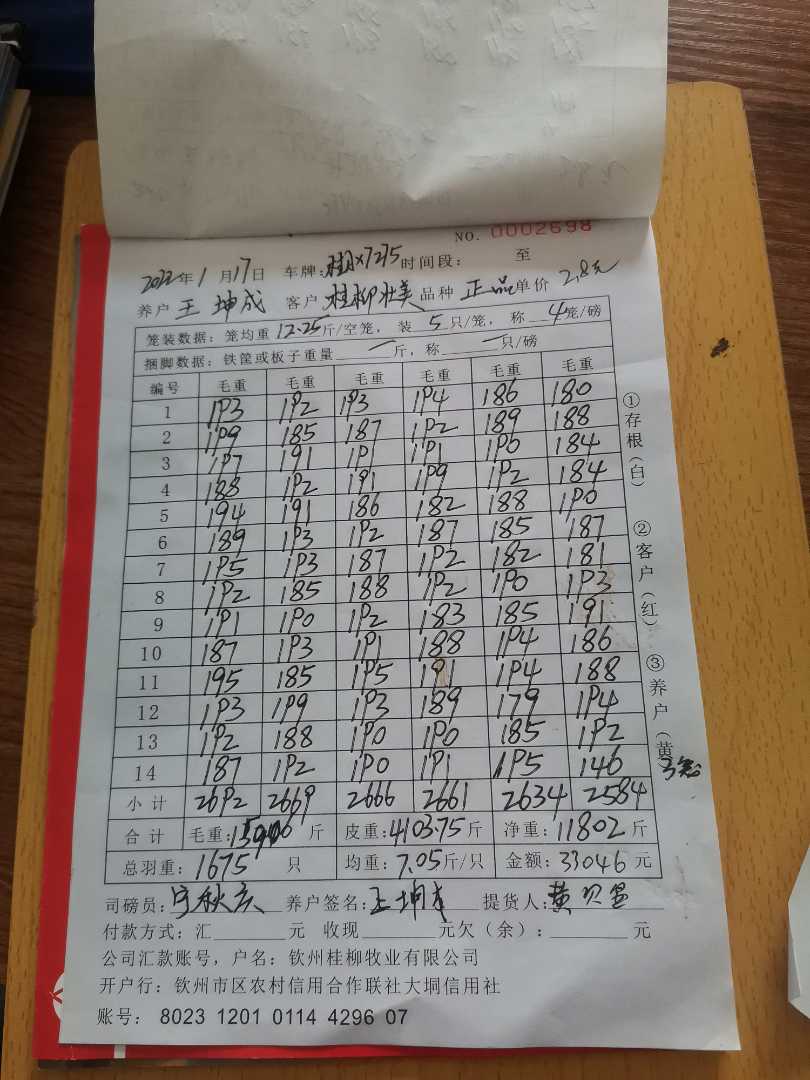 NO. 0002698
2022年1月17日 车牌: 7275 时间段: 至
养户 王坤成 客户 桂柳壮美 品种 正品 单价 2.8元
笼装数据: 笼均重 12.25斤/空笼, 装 5 只/笼, 称 4 笼/磅
捆脚数据: 铁筐或板子重量 一 斤, 称 一 只/磅
编号 毛重 毛重 毛重 毛重 毛重 毛重
1 193 192 193 194 186 180
2 199 185 187 192 189 188
3 197 191 191 191 190 184
4 188 192 191 199 192 184
5 194 191 186 182 188 190
6 189 193 192 187 185 187
7 195 193 187 192 182 181
8 192 185 188 192 190 193
9 191 190 192 183 185 191
10 187 193 191 188 194 186
11 195 185 195 191 194 188
12 193 199 193 189 179 194
13 192 188 190 190 185 192
14 187 192 190 191 195 146
小计 2692 2669 2666 2661 2634 2584
合计 毛重: 15906 斤 皮重: 4103.75 斤 净重: 11802 斤
总羽重: 1675 只 均重: 7.05 斤/只 金额: 33046 元
司磅员: 秋 养户签名: 王坤成 提货人: 黄
付款方式: 汇 元 收现 元欠(余): 元
公司汇款账号, 户名: 钦州桂柳牧业有限公司
开户行: 钦州市区农村信用合作联社大垌信用社
账号: 8023 1201 0114 4296 07
①存根(白)
②客户(红)
③养户(黄
3笼